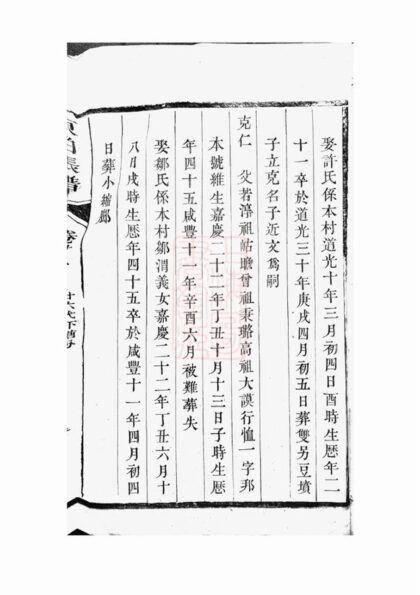 娶許氏係本村道光十年三月初四日酉時生歷年二
十一卒於道光三十年庚戌四月初五日葬雙另豆墳
子立克名子近文爲嗣
克仁 父若淳祖帖瞻曾祖秉璐高祖大謨行恤一字邦
本號維生嘉慶二十二年丁丑十月十三日子時生歷
年四十五咸豐十一年辛酉六月被難葬失
娶鄒氏係本村鄒渭義女嘉慶二十二年丁丑六月十
八日戌時生歷年四十五卒於咸豐十一年四月初四
日葬小
張譜